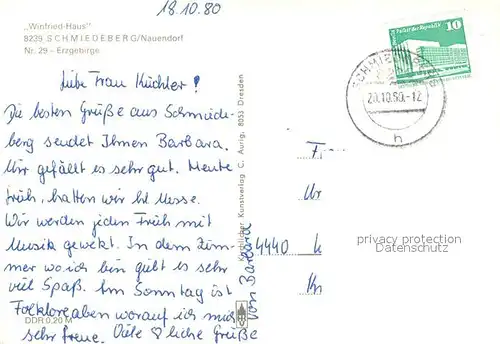 18.10.80
„Winfried-Haus"
8239 SCHMIEDEBERG/Nauendorf
Nr. 29 – Erzgebirge
Liebe Frau Küchler!
Die besten Grüße aus Schmiede-
berg sendet Ihnen Barbara.
Mir gefällt es sehr gut. Heute
früh, hatten wir hl. Messe.
Wir werden jeden Früh mit
Musik gewekt. In dem Zim-
mer wo ich bin gibt es sehr
viel Spaß. Am Sonntag ist
Folkloreaben worauf ich mich
sehr freue. Viele ♡liche Grüße
von Barbara
DDR 0,20 M
Kirchlicher Kunstverlag C. Aurig, 8053 Dresden
Palast der Republik
10
20.10.80.-12
h
4440
privacy protection
Datenschutz